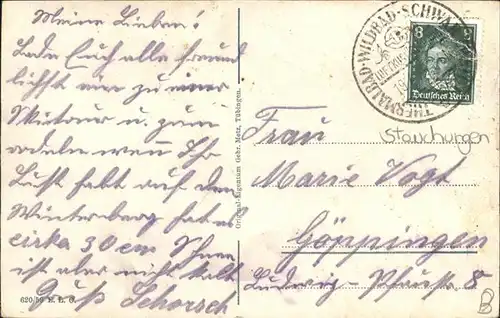 Meine Lieben!
Lade Euch alle freund
lichst ein zu einer
Skitour u. zum
rodeln wenn Ihr
Lust habt auf den
Winterberg hat es
cirka 30 cm Schnee
ist aber nicht kalt
Gruß Schorsch
620/16 E. L. G.
Original-Eigentum Gebr. Metz, Tübingen.
THERMALBAD-WILDBAD-SCHWA
8
Deutsches Reich
Stauchungen
Frau
Marie Vogt
Göppingen
Ludwig-Pfaustr 8
B